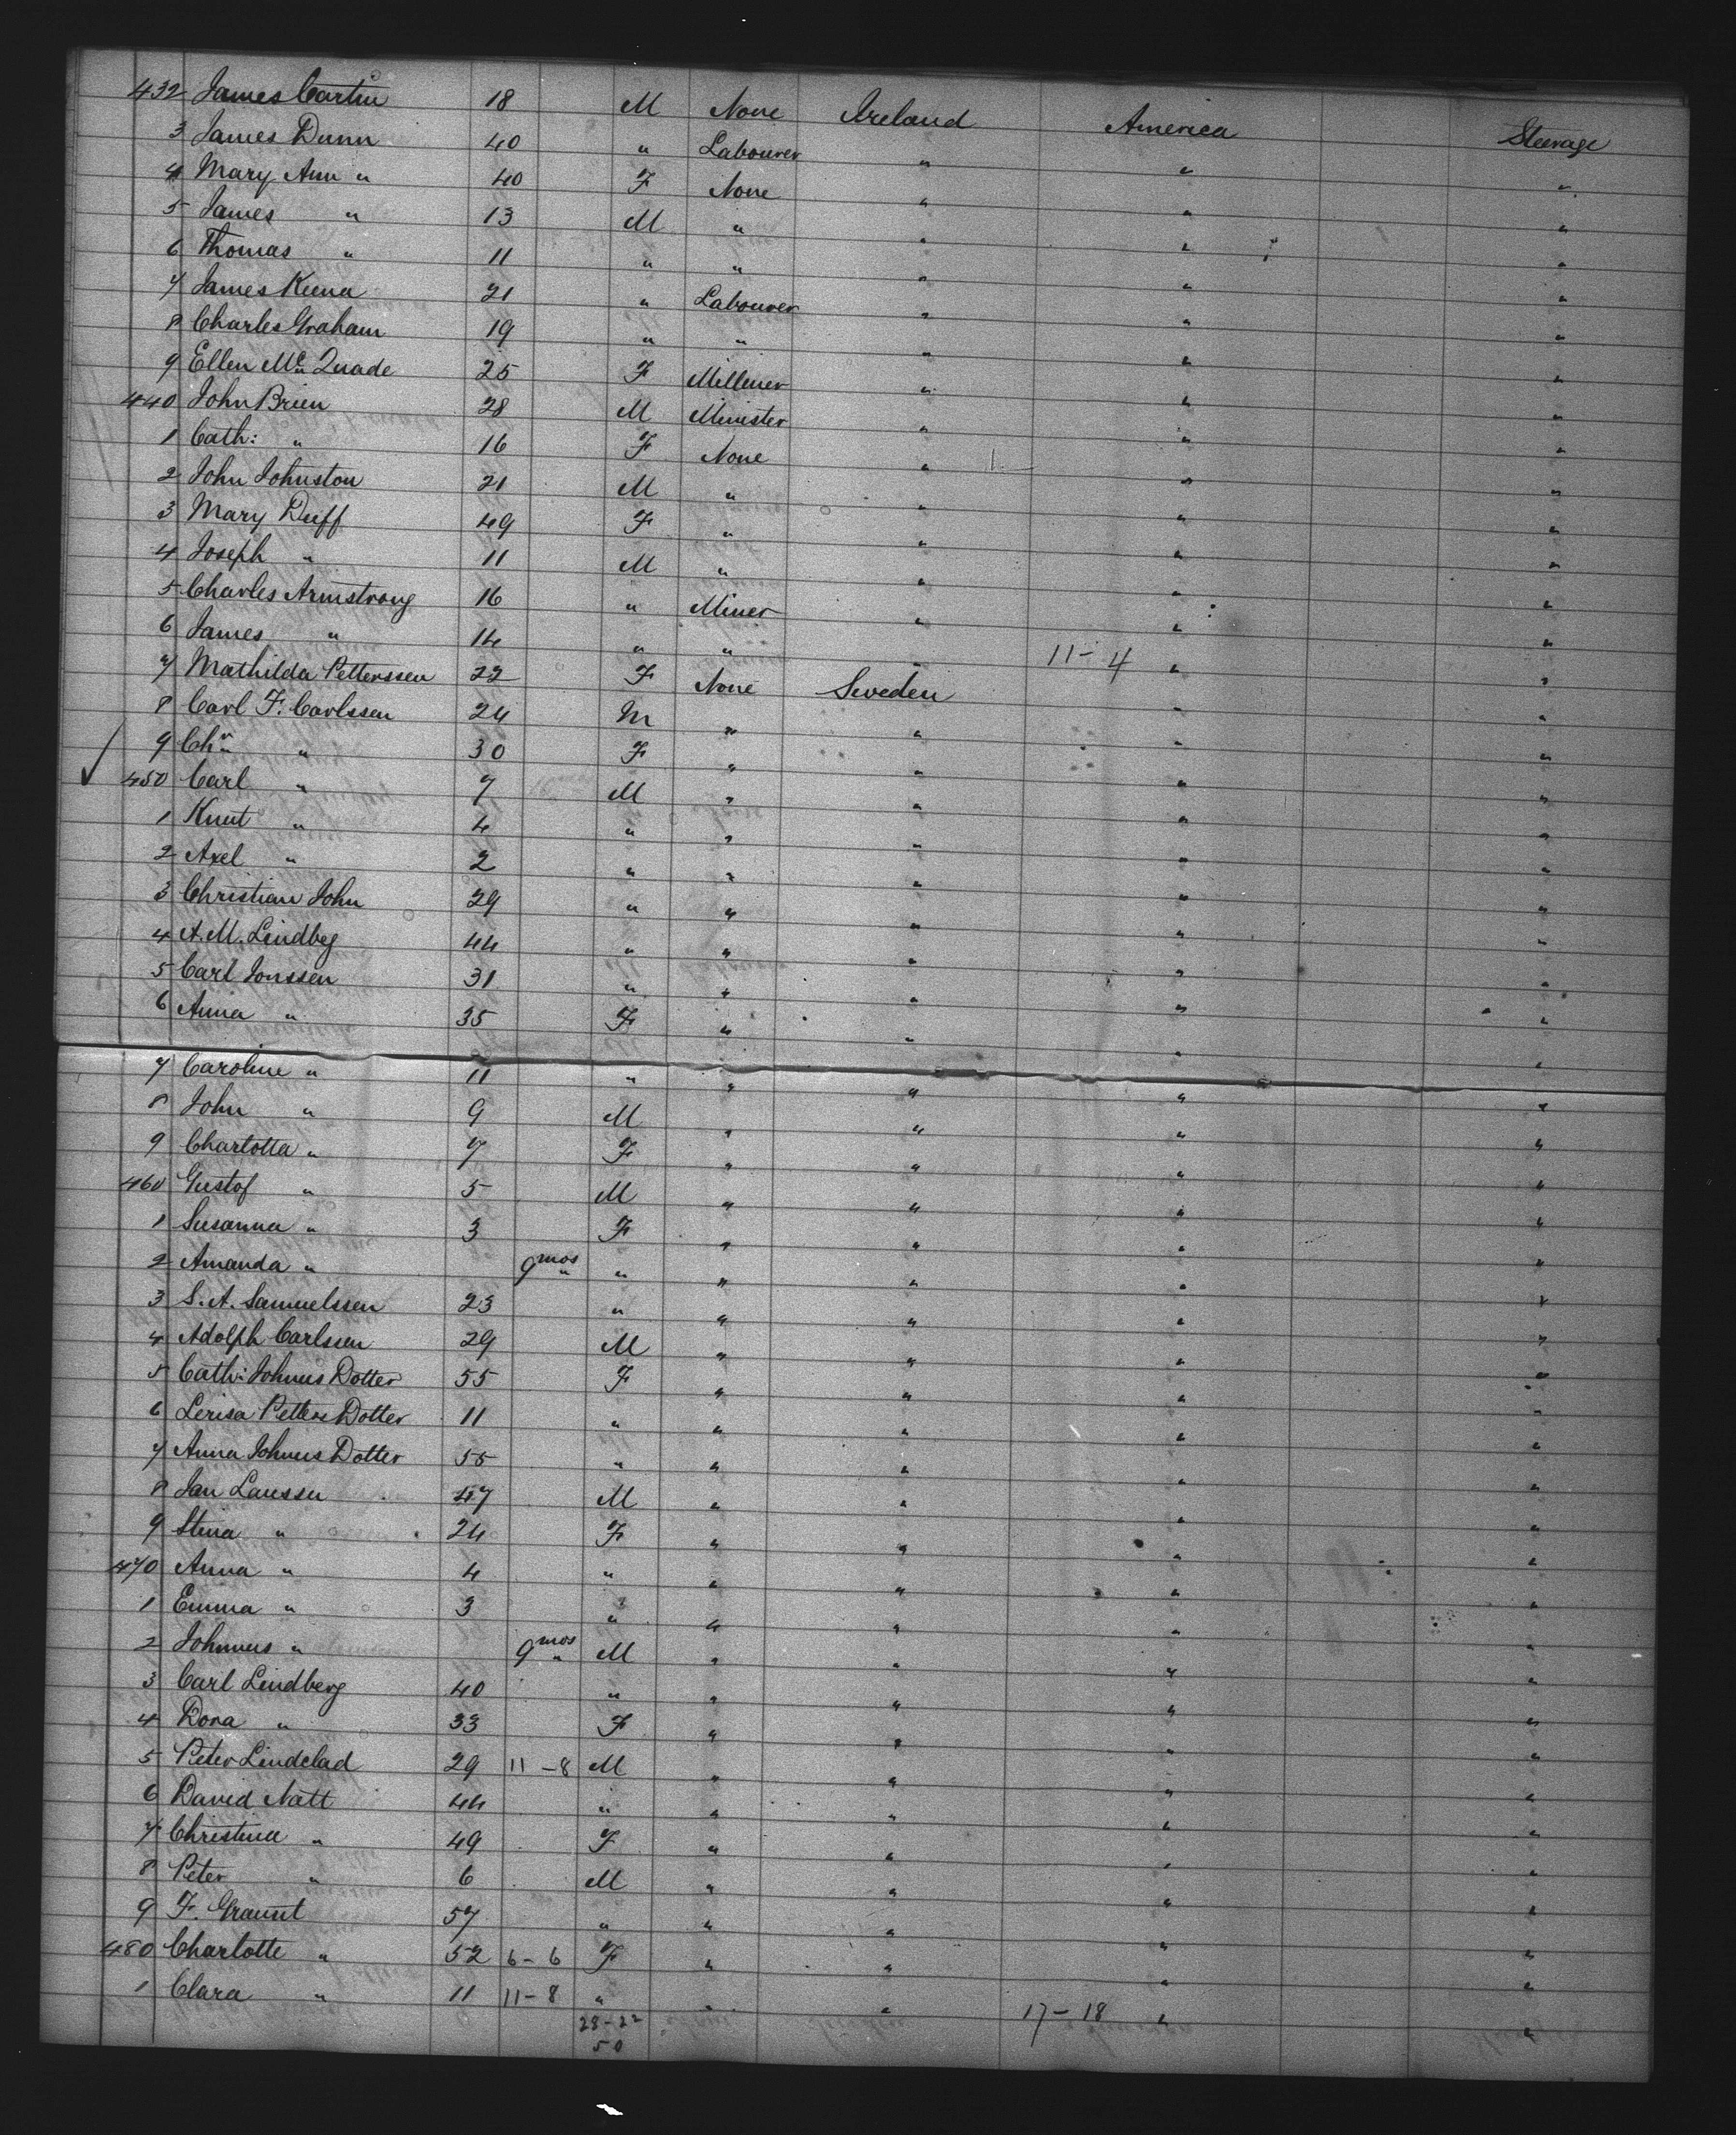 432 James Cartin 18 M None Ireland America Steerage
3 James Dunn 40 " Labourer " " "
4 Mary Ann " 40 F None " " "
5 James " 13 M " " " "
6 Thomas " 11 " " " " "
7 James Keena 21 " Labourer " " "
8 Charles Graham 19 " " " " "
9 Ellen Mc Quade 25 F Milliner " " "
440 John Brien 28 M Minister " " "
1 Cath: " 16 F None " " "
2 John Johnston 21 M " " " "
3 Mary Duff 49 F " " " "
4 Joseph " 11 M " " " "
5 Charles Armstrong 16 " Miner " " "
6 James " 14 " " " 11-4 " "
7 Mathilda Petterssen 22 F None Sweden " "
8 Carl F. Carlssen 24 M " " " "
9 Chrn " 30 F " " " "
450 Carl " 7 M " " " "
1 Knut " 4 " " " " "
2 Axel " 2 " " " " "
3 Christian John 29 " " " " "
4 A. M. Lindbeg 44 " " " " "
5 Carl Jonssen 31 " " " " "
6 Anna " 35 F " " " "
7 Caroline " 11 " " " " "
8 John " 9 M " " " "
9 Charlotta " 7 F " " " "
460 Gustof " 5 M " " " "
1 Susanna " 3 F " " " "
2 Amanda " 9 mos " " " " "
3 S. A. Samuelssen 23 " " " " "
4 Adolph Carlssen 29 M " " " "
5 Cath: Johnus Dotter 55 F " " " "
6 Lerisa Petters Dotter 11 " " " " "
7 Anna Johnus Dotter 55 " " " " "
8 Jan Laussen 47 M " " " "
9 Stina " 24 F " " " "
470 Anna " 4 " " " " "
1 Emma " 3 " " " " "
2 Johnnus " 9 mos M " " " "
3 Carl Lindberg 40 " " " " "
4 Dora " 33 F " " " "
5 Peter Lindelad 29 11-8 M " " " "
6 David Natt 44 " " " " "
7 Christina " 49 F " " " "
8 Peter " 6 M " " " "
9 F. Graunt 57 " " " " "
480 Charlotte " 52 6-6 F " " " "
1 Clara " 11 11-8 " " " 17-18 " "
28-22
50